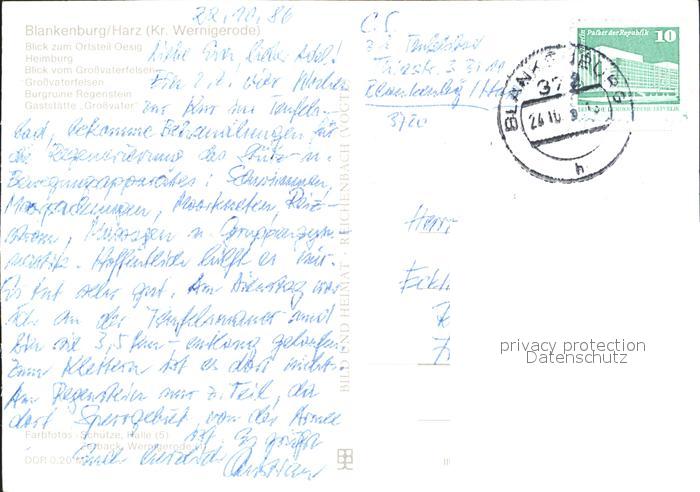 22.10.86
Blankenburg/Harz (Kr. Wernigerode)
Blick zum Ortsteil Oesig
Heimburg
Blick vom Großvaterfelsen
Großvaterfelsen
Burgruine Regenstein
Gaststätte „Großvater"
Liebe Eva, lieber
Bin z.Z. vier Wochen
zur Kur im Teufels-
bad, bekomme Behandlungen für
die Regenerierung des Stütz- u.
Bewegungsapparates: Schwimmen,
Moorpackungen, Moorkneten, Reiz-
strom, Massagen u. Gruppengym-
nastik. Hoffentlich hilft es mir.
Es tut sehr gut. Am Dienstag war
ich an der Teufelsmauer und
bin die 3,5 km entlang gelaufen.
Zum Klettern ist es dort nicht.
Am Regenstein nur z. Teil, da
dort Sperrgebiet von der Armee
ist. Es grüßt
Euch herzlich
Farbfotos: Schütze, Halle (5)
Wernigerode
DDR 0,20 M
BILD UND HEIMAT · REICHENBACH (VOGTL)
z.Z. Teufelsbad
Blankenburg / Harz
3720
Herrn
Palast der Republik 10
BLANKENBURG
372
h
privacy protection
Datenschutz